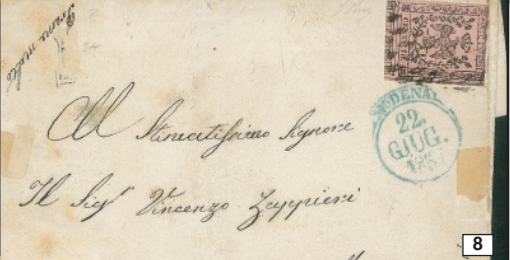 MODENA
22.
GIUG.
185
Al Stimatissimo Signore
Il Sigr Vincenzo Zappieri
8